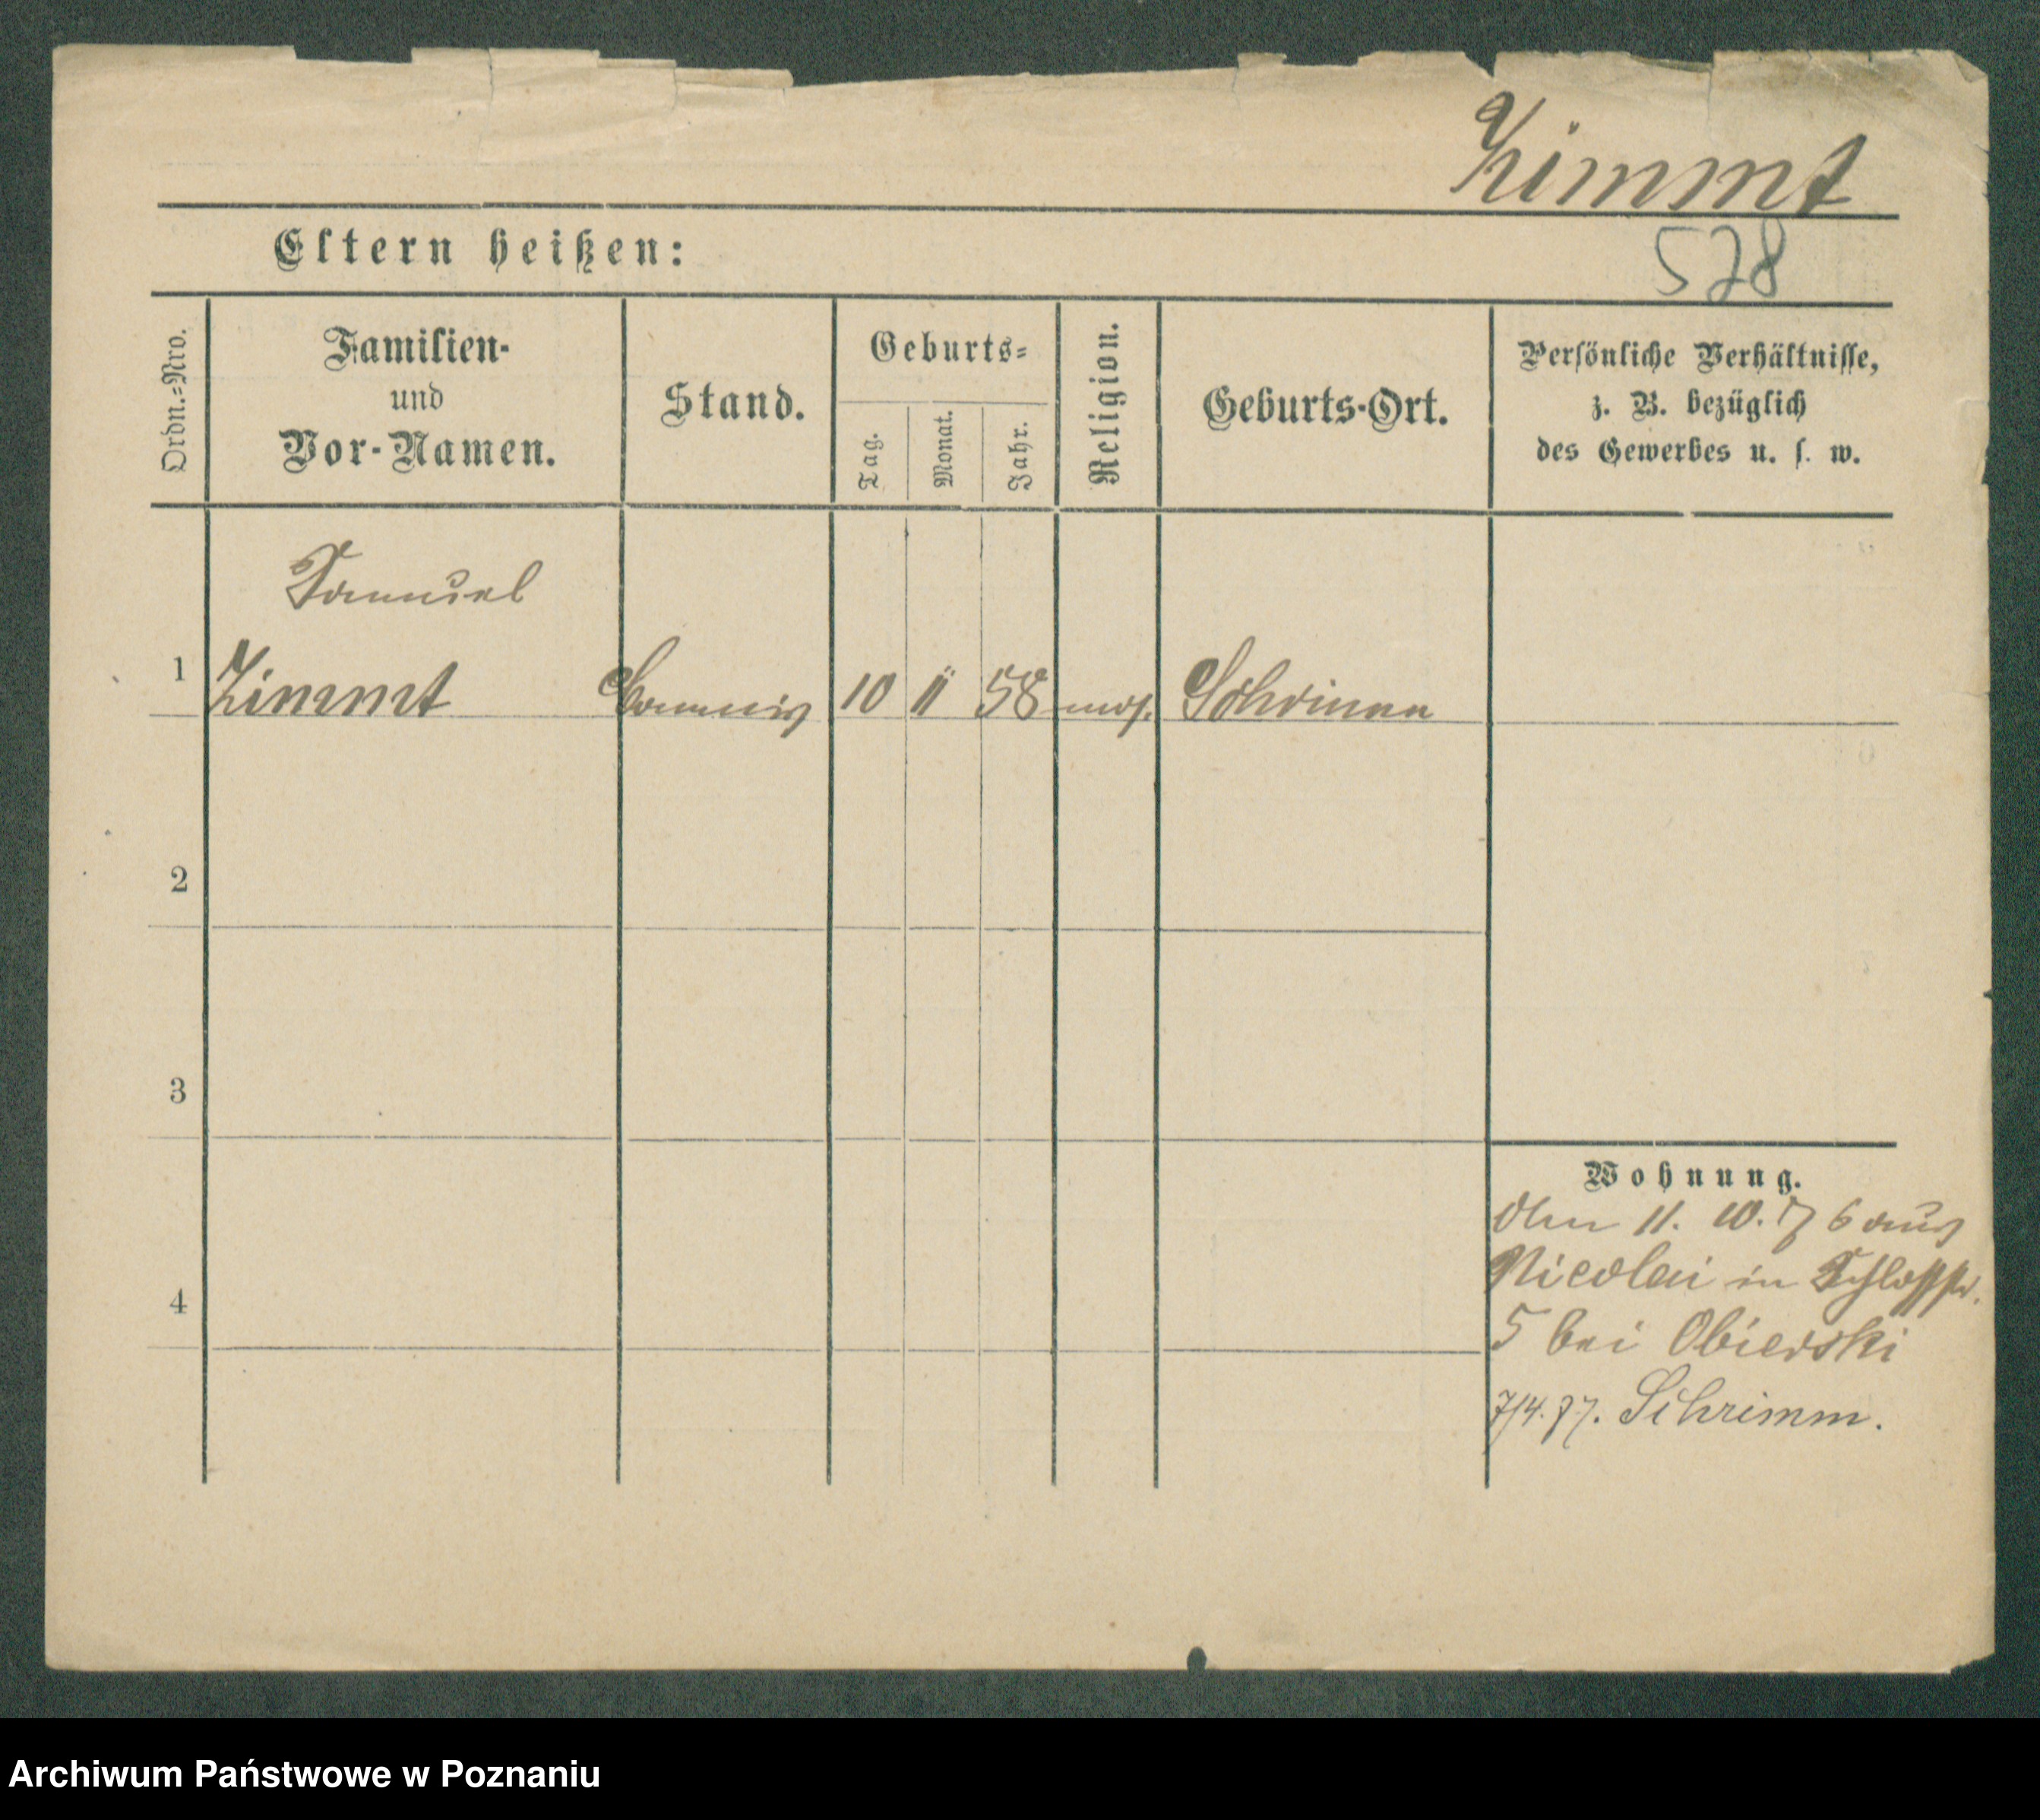 Zimmt
Eltern heißen:
578
Ordn.=Nro.
Familien-
und
Vor-Namen.
Stand.
Geburts=
Tag.
Monat.
Jahr.
Religion.
Geburts-Ort.
Persönliche Verhältnisse,
z. B. bezüglich
des Gewerbes u. s. w.
Samuel
1 Zimmt Commis 10 11 58 mos. Schrimm
2
3
4
Wohnung.
11. 10. 76 aus
Nicolai in Schloßstr.
5 bei Obierski
7/4.77. Schrimm.
Archiwum Państwowe w Poznaniu